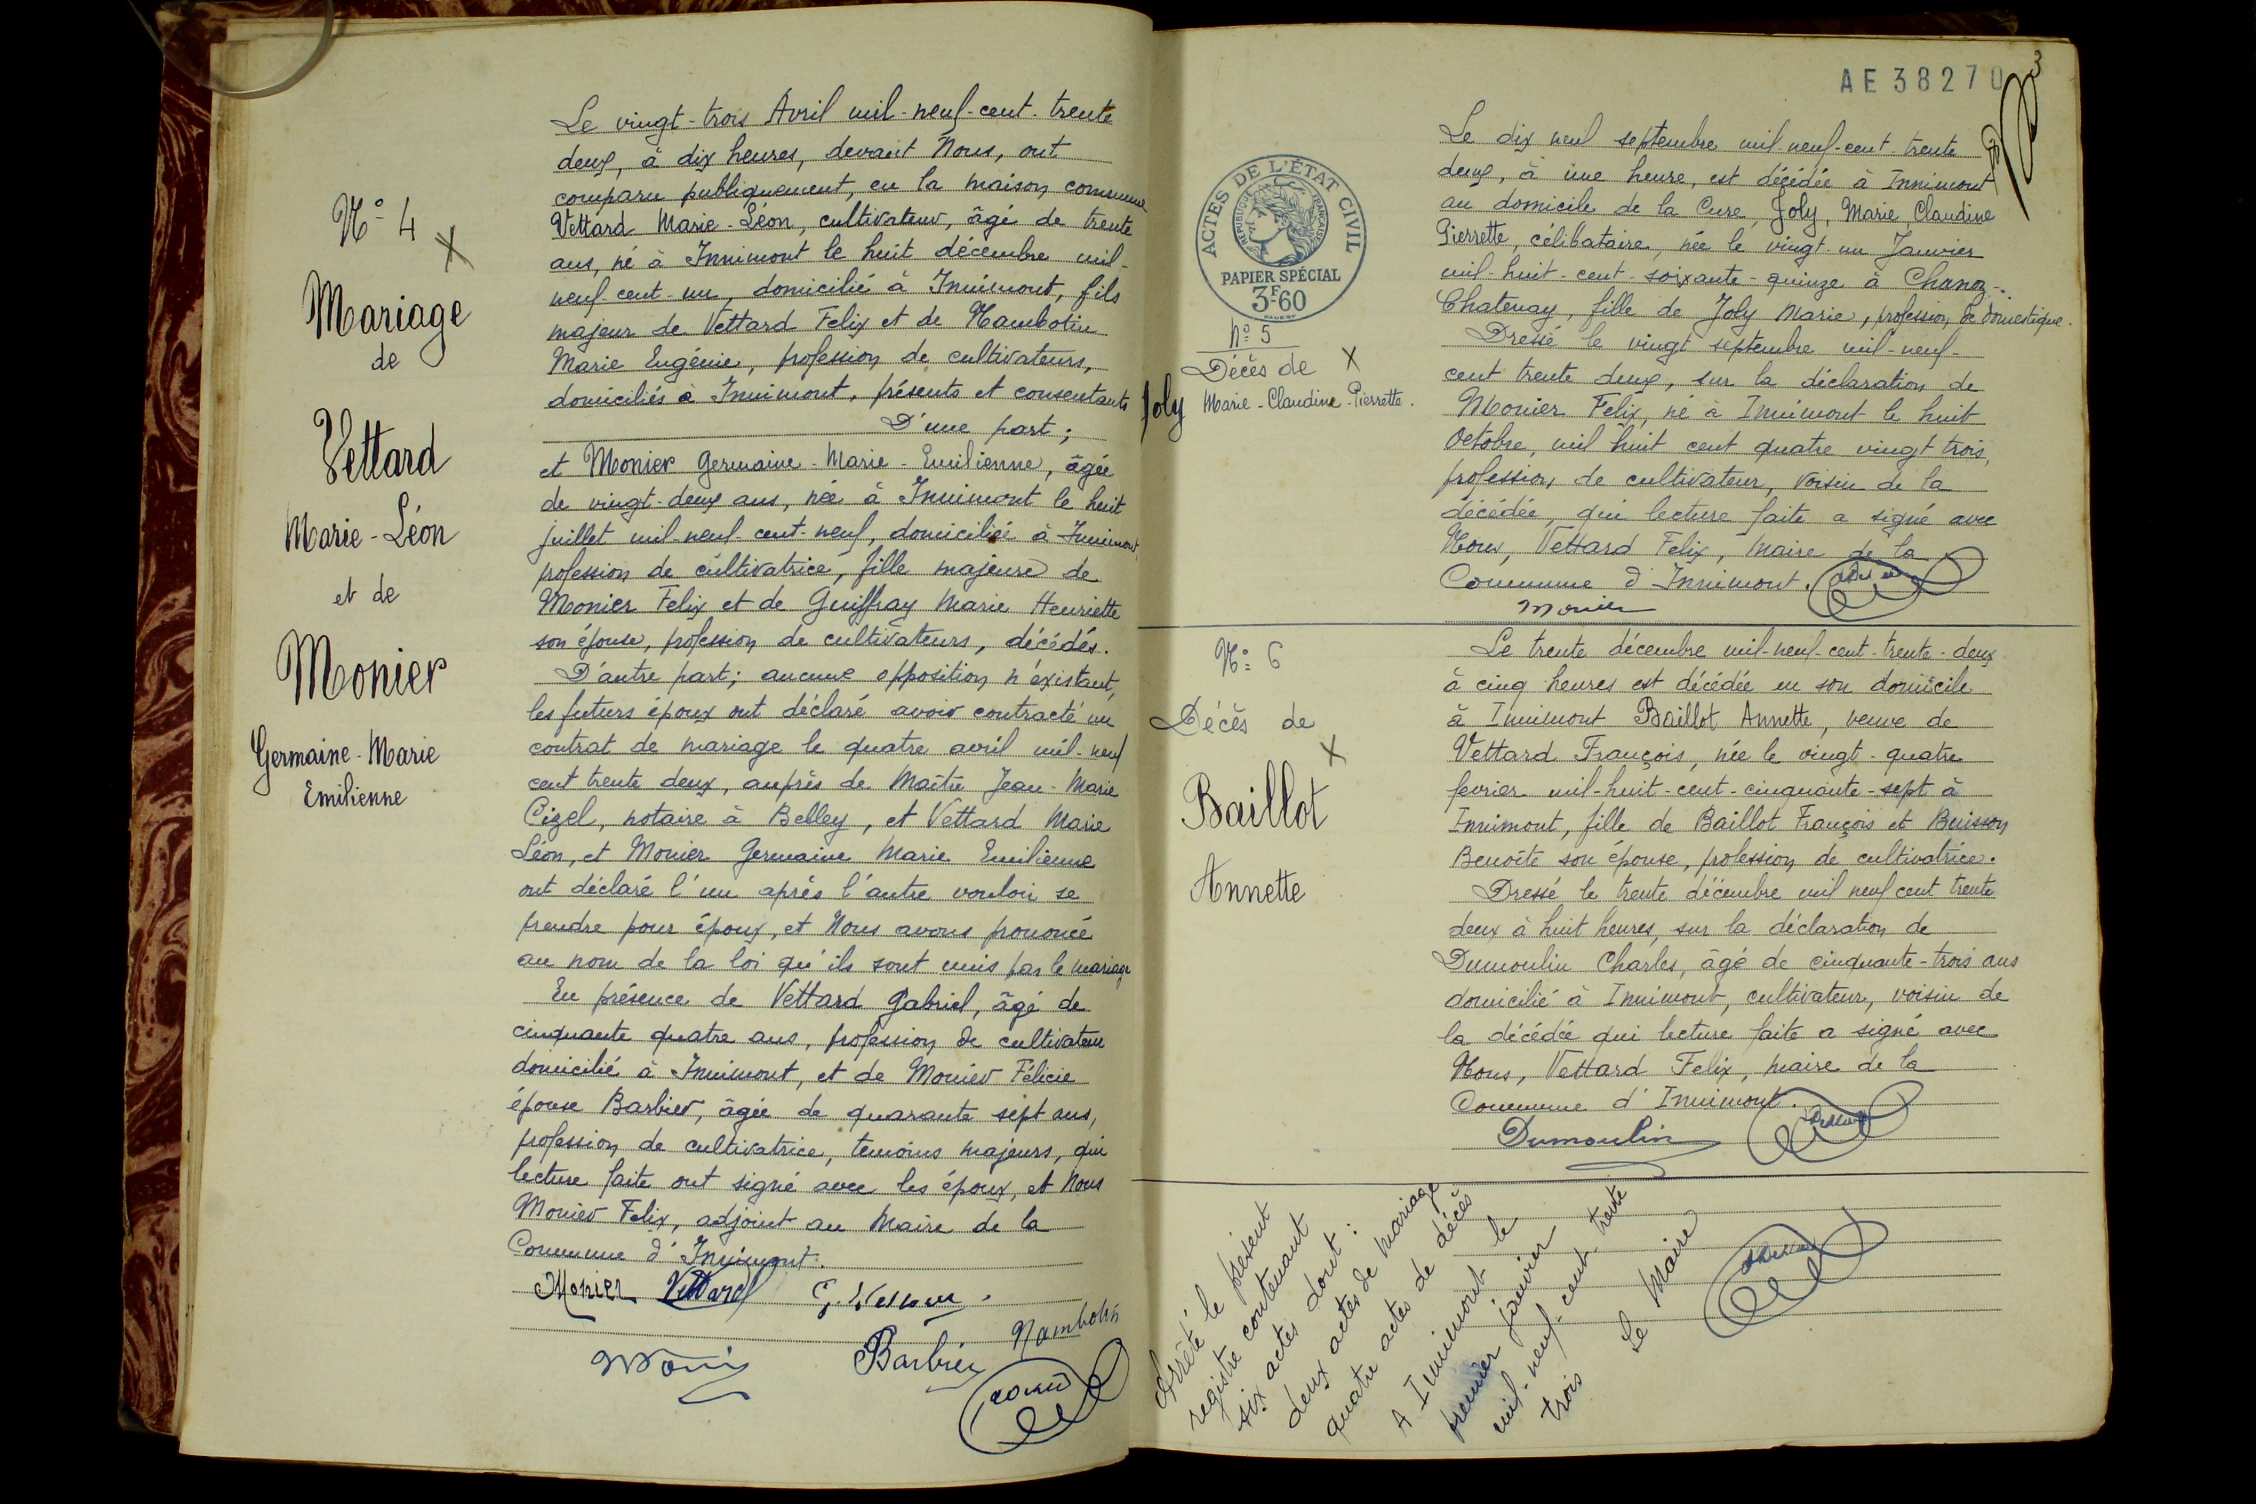 N° 4
Mariage
de
Vettard
Marie-Léon
et de
Monier
Germaine-Marie
Emilienne
Le vingt-trois Avril mil-neuf-cent-trente
deux, à dix heures, devant Nous, ont
comparu publiquement, en la maison commune
Vettard Marie-Léon, cultivateur, âgé de trente
ans, né à Innimont le huit décembre mil-
neuf-cent-un, domicilié à Innimont, fils
majeur de Vettard Felix et de Nambotin
Marie Eugénie, profession de cultivateurs,
domiciliés à Innimont, présents et consentants
D'une part;
et Monier Germaine-Marie-Emilienne, âgée
de vingt-deux ans, née à Innimont le huit
juillet mil-neuf-cent-neuf, domiciliée à Innimont,
profession de cultivatrice, fille majeure de
Monier Felix et de Guiffray Marie Henriette
son épouse, profession de cultivateurs, décédés.
D'autre part; aucune opposition n'éxistant,
les futurs époux ont déclaré avoir contracté un
contrat de mariage le quatre avril mil-neuf
cent trente deux, auprès de Maître Jean-Marie
Cizel, notaire à Belley, et Vettard Marie
Léon, et Monier Germaine Marie Emilienne
ont déclaré l'un après l'autre vouloir se
prendre pour époux, et Nous avons prononcé
au nom de la loi qu'ils sont unis par le mariage
En présence de Vettard Gabriel, âgé de
cinquante quatre ans, profession de cultivateur
domicilié à Innimont, et de Monier Félicie
épouse Barbier, âgée de quarante sept ans,
profession de cultivatrice, temoins majeurs, qui
lecture faite ont signé avec les époux, et Nous
Monier Felix, adjoint au Maire de la
Commune d'Innimont.
Monier Vettard
Barbier Nambotin
AE 38270
3
ACTES DE L'ÉTAT CIVIL
RÉPUBLIQUE FRANÇAISE
PAPIER SPÉCIAL
3F60
N° 5
Décès de
Joly Marie-Claudine-Pierrette.
Le dix neuf septembre mil-neuf-cent-trente
deux, à une heure, est décédée à Innimont
au domicile de la Cure, Joly, Marie, Claudine
Pierrette, célibataire, née le vingt-un Janvier
mil-huit-cent-soixante-quinze à Chanoz-
Chatenay, fille de Joly Marie, profession de domestique.
Dressé le vingt septembre mil-neuf-
cent trente deux, sur la déclaration de
Monier Felix, né à Innimont le huit
Octobre, mil huit cent quatre vingt trois,
profession de cultivateur, voisin de la
décédée, qui lecture faite a signé avec
Nous, Vettard Felix, maire de la
Commune d'Innimont.
Monier
N° 6
Décès de
Baillot
Annette
Le trente décembre mil-neuf-cent-trente-deux
à cinq heures est décédée en son domicile
à Innimont Baillot Annette, veuve de
Vettard François, née le vingt-quatre
fevrier mil-huit-cent-cinquante-sept à
Innimont, fille de Baillot François et Buisson
Benoîte son épouse, profession de cultivatrice.
Dressé le trente décembre mil neuf cent trente
deux à huit heures, sur la déclaration de
Dumoulin Charles, âgé de cinquante-trois ans
domicilié à Innimont, cultivateur, voisin de
la décédée qui lecture faite a signé avec
Nous, Vettard Felix, maire de la
Commune d'Innimont.
Dumoulin
Arrêté le présent
registre contenant
six actes dont :
deux actes de mariage
quatre actes de décès
A Innimont le
premier janvier
mil-neuf-cent-trente
trois
Le Maire